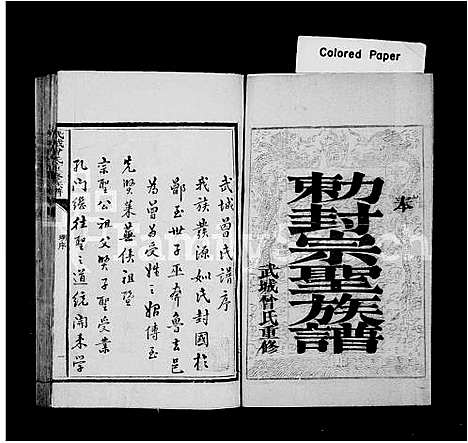 Colored Paper
本
勅封宗聖族譜
武城曾氏重修
武城曾氏譜序
我族發源姒氏封國於
鄫至世子巫奔魯去邑
為曾曾受姓之始傳至
先賢萊蕪侯祖暨
宗聖公祖父賢子聖受業
孔門繼往聖之道統開來學